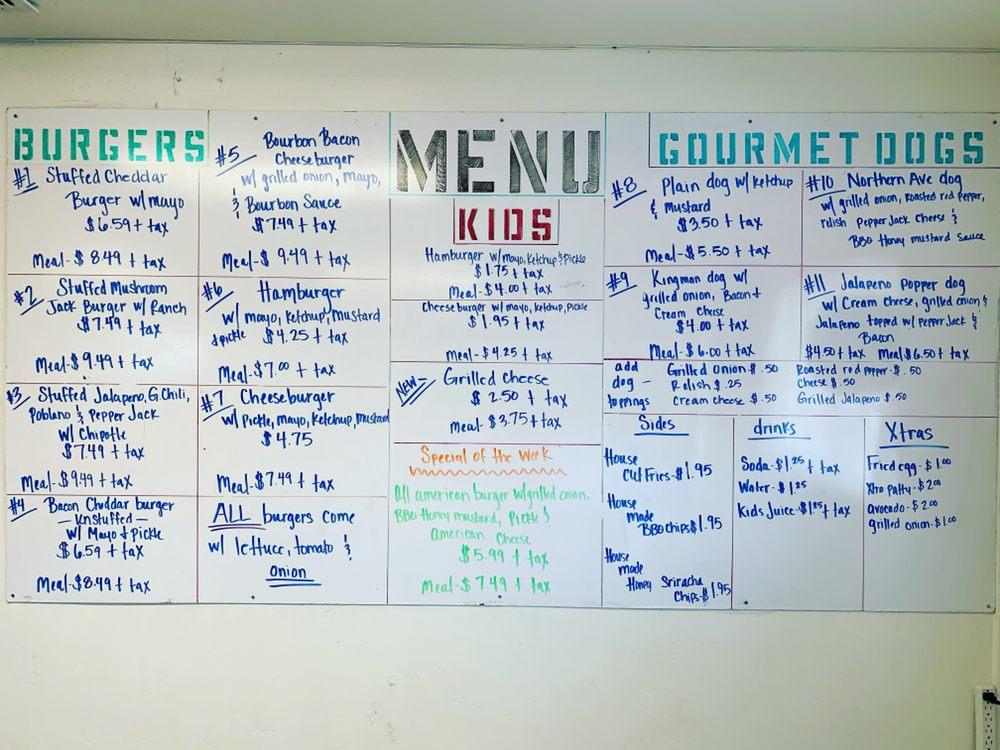 BURGERS
#1 Stuffed Cheddar
Burger w/ mayo
$6.59 + tax
Meal - $8.49 + tax
#2 Stuffed Mushroom
Jack Burger w/ Ranch
$7.49 + tax
Meal - $9.49 + tax
#3 Stuffed Jalapeno, G. Chili,
Poblano & Pepper Jack
w/ Chipotle
$7.49 + tax
Meal - $9.49 + tax
#4 Bacon Cheddar burger
- Unstuffed -
w/ Mayo & Pickle
$6.59 + tax
Meal - $8.49 + tax
#5 Bourbon Bacon
Cheeseburger
w/ grilled onion, mayo,
& Bourbon Sauce
$7.49 + tax
Meal - $9.49 + tax
#6 Hamburger
w/ mayo, Ketchup, mustard
& pickle $4.25 + tax
Meal - $7.00 + tax
#7 Cheeseburger
w/ Pickle, mayo, Ketchup, mustard
$4.75
Meal - $7.49 + tax
ALL burgers come
w/ lettuce, tomato &
onion
MENU
KIDS
Hamburger w/ mayo, Ketchup & Pickle
$1.75 + tax
Meal - $4.00 + tax
Cheeseburger w/ mayo, ketchup, Pickle
$1.95 + tax
Meal - $4.25 + tax
NEW - Grilled Cheese
$2.50 + tax
Meal - $3.75 + tax
Special of the Week
All american burger w/ grilled onion,
BBQ Honey mustard, Pickle &
American Cheese
$5.99 + tax
Meal - $7.49 + tax
GOURMET DOGS
#8 Plain dog w/ ketchup
& Mustard
$3.50 + tax
Meal - $5.50 + tax
#9 Kingman dog w/
grilled onion, Bacon +
Cream Cheese
$4.00 + tax
Meal - $6.00 + tax
#10 Northern Ave dog
w/ grilled onion, Roasted red Pepper,
relish Pepper Jack Cheese &
BBQ Honey mustard Sauce
#11 Jalapeno Popper dog
w/ Cream Cheese, grilled onion &
Jalapeno topped w/ Pepper Jack &
Bacon
$4.50 + tax Meal $6.50 + tax
add
dog -
toppings
Grilled Onion $.50
Relish $.25
Cream cheese $.50
Roasted red pepper - $.50
Cheese $.50
Grilled Jalapeno $.50
Sides
House
Cut Fries - $1.95
House
made
BBQ chips $1.95
House
made
Honey Sriracha
Chips - $1.95
drinks
Soda - $1.25 + tax
Water - $1.25
Kids Juice - $1.25 + tax
Xtras
Fried egg - $1.00
Xtra Patty - $2.00
avocado - $2.00
grilled onion - $1.00